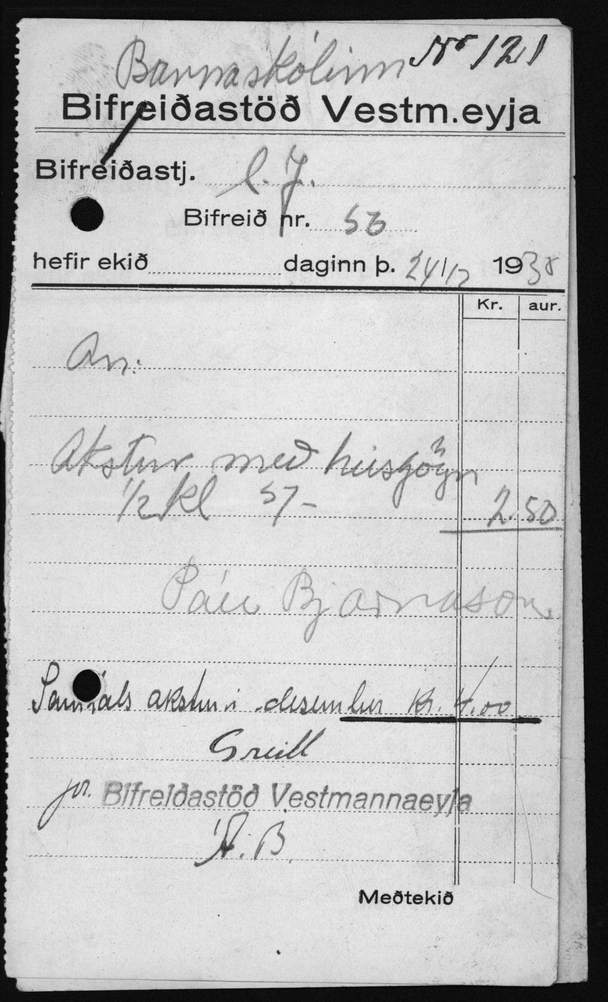 Barnaskólinn Nr 121
Bifreiðastöð Vestm.eyja
Bifreiðastj.
Bifreið nr. 56
hefir ekið daginn þ. 24/12 1938
Kr. aur.
An:
Akstur með húsgögn
1/2 kl 2.50
Páll Bjarnason
Samtals akstur í desember kr. 4.00
Greitt
pr. Bifreiðastöð Vestmannaeyja
Á. B.
Meðtekið